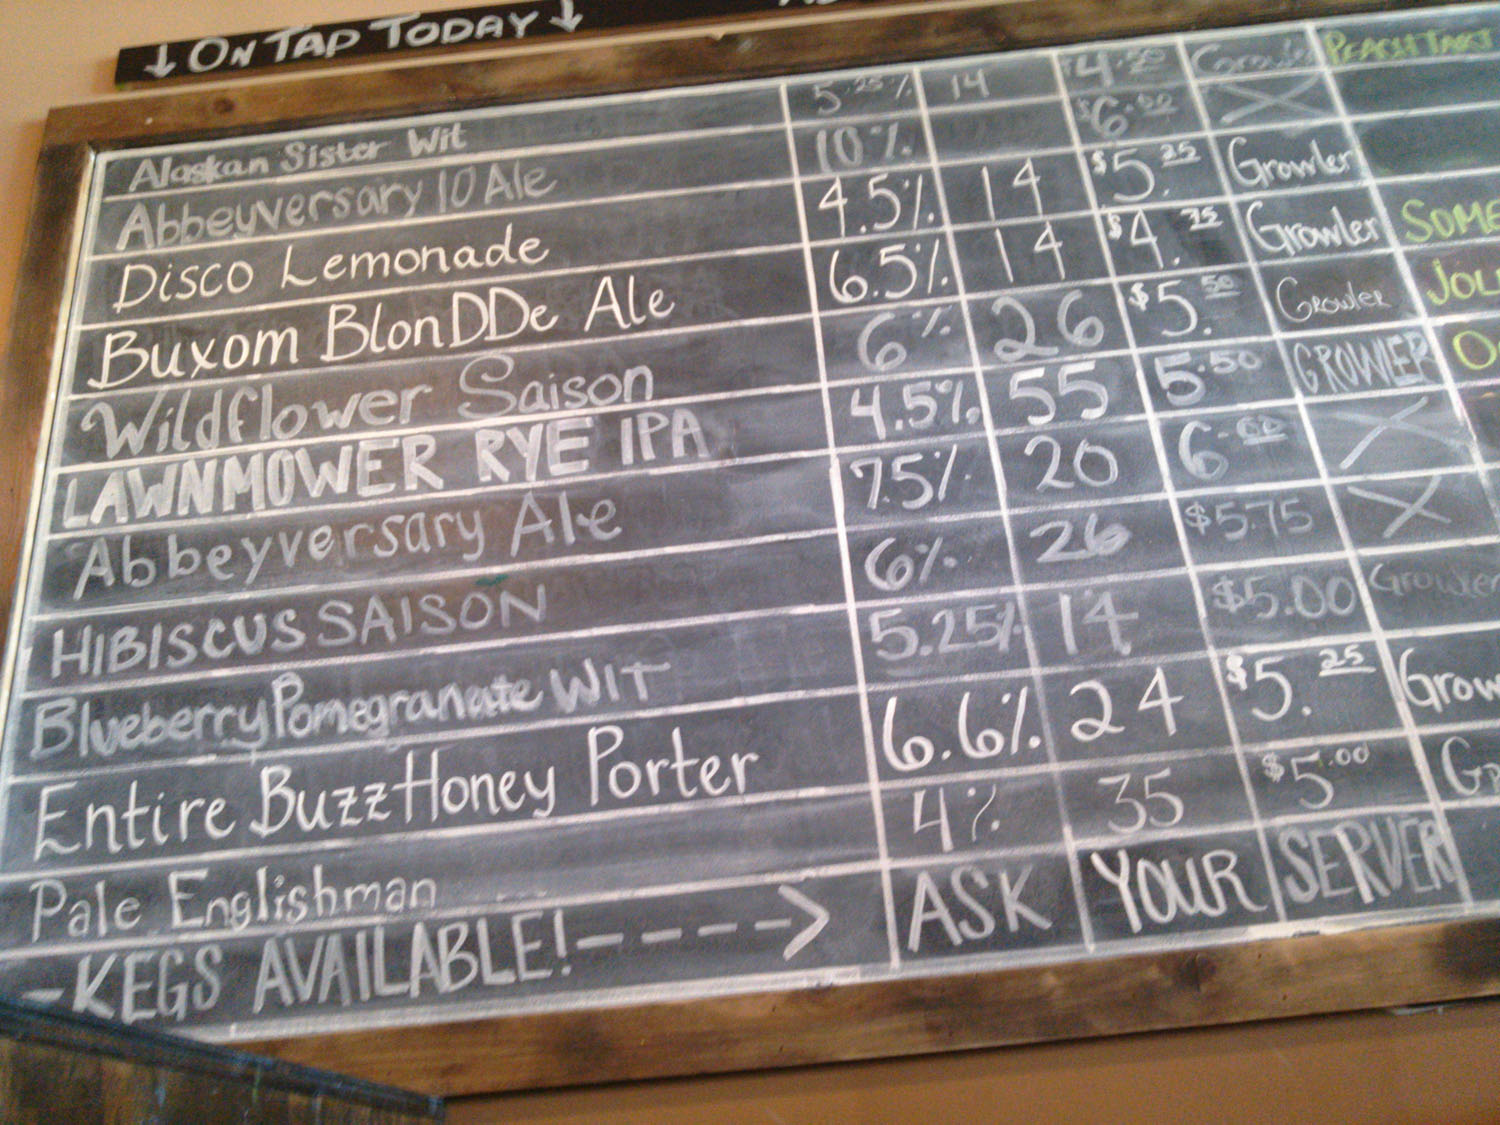 ↓ ON TAP TODAY ↓
Alaskan Sister Wit 5.25% 14 $4.50 Growler PEACH TART
Abbeyversary 10 Ale 10% $6.00 X
Disco Lemonade 4.5% 14 $5.25 Growler
Buxom BlonDDe Ale 6.5% 14 $4.75 Growler SOME
Wildflower Saison 6% 26 $5.50 Growler JOL
LAWNMOWER RYE IPA 4.5% 55 5.50 GROWLER
Abbeyversary Ale 7.5% 20 6.00 X
HIBISCUS SAISON 6% 26 $5.75 X
Blueberry Pomegranate WIT 5.25% 14 $5.00 Growler
Entire Buzz Honey Porter 6.6% 24 $5.25 Grow
Pale Englishman 4% 35 $5.00 Gr
-KEGS AVAILABLE!----> ASK YOUR SERVER